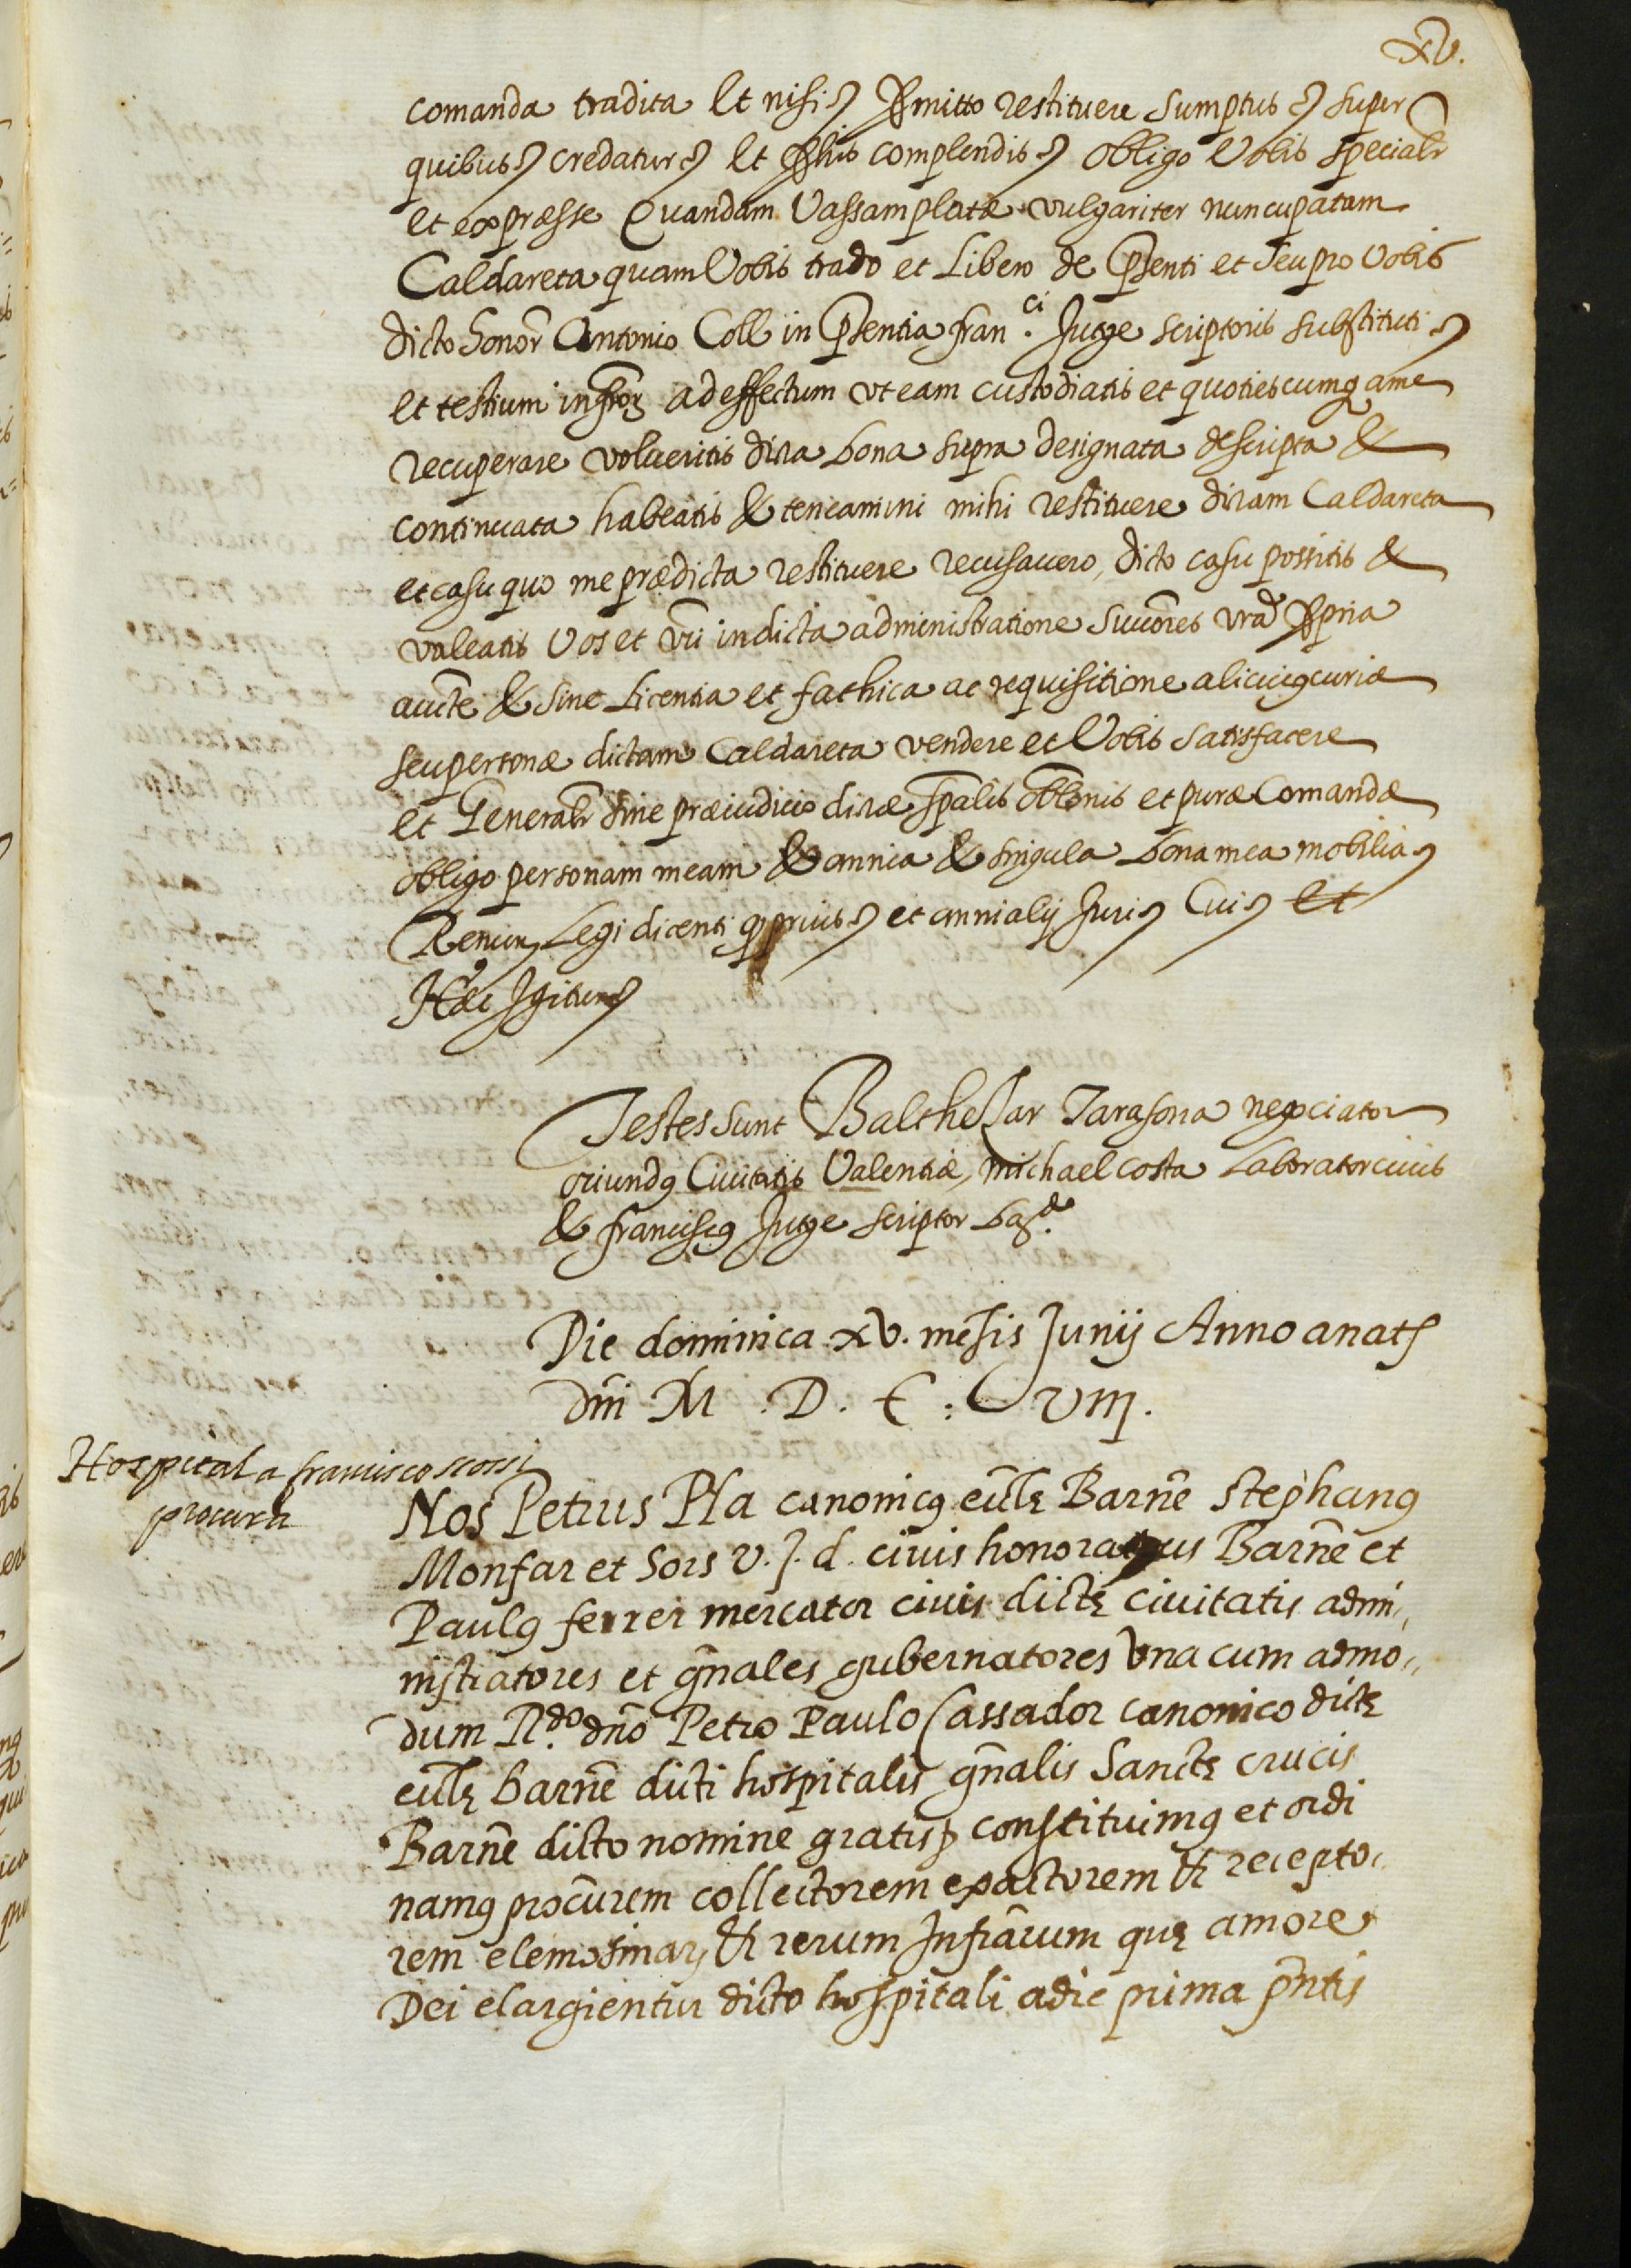 xv.
comanda tradita Et nisi Promitto restituere sumptus super
quibus credatur Et Prohis complendis obligo Vobis specialr
et expræsse Quandam Vassam platæ vulgariter nuncupatam
Caldareta quam Vobis trado et Libero de Pñsenti et seu pro Vobis
dicto honor Antonio Coll in Pñsentia fran.ci Jutge scriptoris substituti
et testium infror ad effectum vt eam custodiatis et quotiescumq ame
recuperare volueritis dicta bona supra designata descripta &
continuata habeatis & teneamini mihi restituere dictam Caldareta
et casu quo me prædicta restituere recusauero, dicto casu possitis &
valeatis Vos et vři in dicta administratione Succores vrã Ppria
aucte & sine Licentia et fathica ac requisitione alicuig curiæ
seu personæ dictam Caldareta vendere et Vobis satisfacere
et Generalr sine præiudicio dictæ spalis oblonis et puræ Comandæ
obligo personam meam & omnia & singula bona mea mobilia
Renun Legi dicenti q prius et omni alij Juri Cui Et
Hæc Igitur
Testes sunt Balthesar Tarasona negociator
oriundq Ciuitatis Valentiæ, michael costa Laborator ciuis
& franciscq Jutge scriptor bar.
Die dominica xv. mesis Junij Anno anat
dñi M . D . C : Cviij.
Hospital a francisco scorsi
procura
Nos Petrus Pla canonicq ecclę Barñe stephanq
Monfar et sors v. J. d. ciuis honoratus Barñe et
Paulq ferrer mercator ciuis dictę ciuitatis admi,,
nistratores et gñales gubernatores Vna cum admo,,
dum R.do dño Petro Paulo Cassador canonico dictę
ecclę barñe dicti hospitalis gñalis sanctę crucis
Barñe dicto nomine gratis constituimq et ordi
namq procurem collectorem exactorem et recepto,,
rem elemosinar, et rerum Infrarum quę amore
Dei elargientur dicto hospitali adie prima pñtis